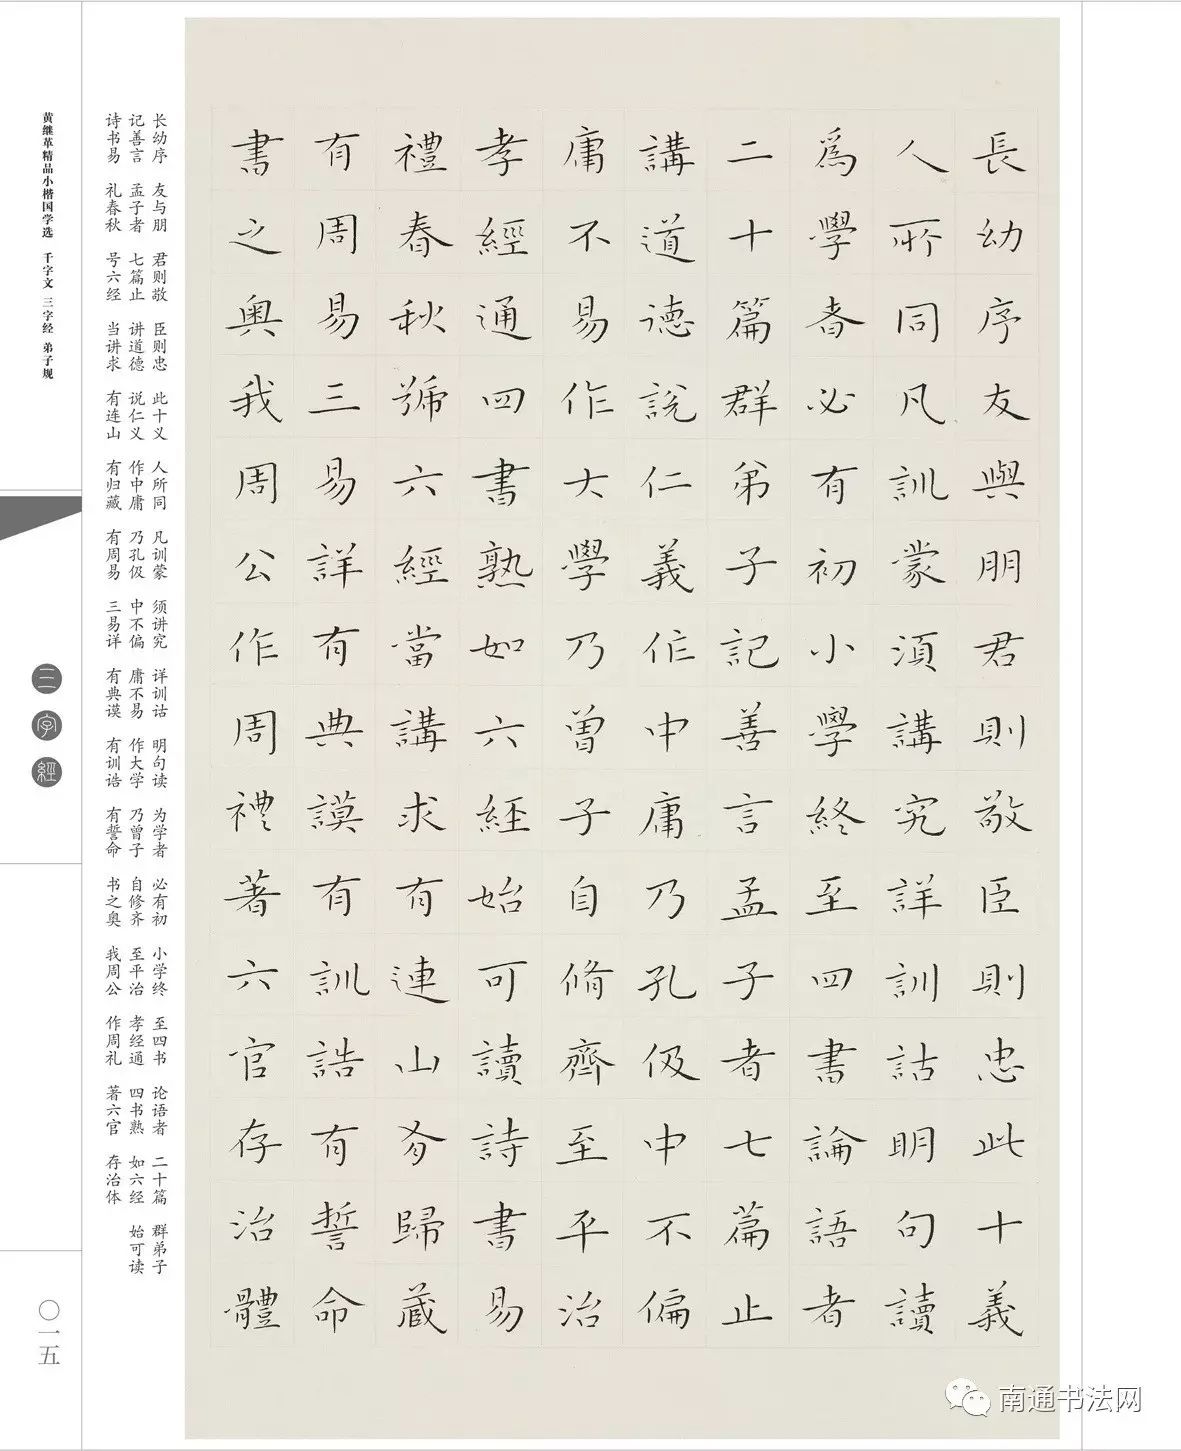 長幼序友與朋君則敬臣則忠此十義
人所同凡訓蒙須講究詳訓詁明句讀
爲學者必有初小學終至四書論語者
二十篇群弟子記善言孟子者七篇止
講道德說仁義作中庸乃孔伋中不偏
庸不易作大學乃曾子自脩齊至平治
孝經通四書熟如六經始可讀詩書易
禮春秋號六經當講求有連山有歸藏
有周易三易詳有典謨有訓誥有誓命
書之奧我周公作周禮著六官存治體
长幼序 友与朋 君则敬 臣则忠 此十义 人所同 凡训蒙 须讲究 详训诂 明句读 为学者 必有初 小学终 至四书 论语者 二十篇 群弟子
记善言 孟子者 七篇止 讲道德 说仁义 作中庸 乃孔伋 中不偏 庸不易 作大学 乃曾子 自修齐 至平治 孝经通 四书熟 如六经 始可读
诗书易 礼春秋 号六经 当讲求 有连山 有归藏 有周易 三易详 有典谟 有训诰 有誓命 书之奥 我周公 作周礼 著六官 存治体
黄继革精品小楷国学选 千字文 三字经 弟子规
三字經
〇一五
南通书法网